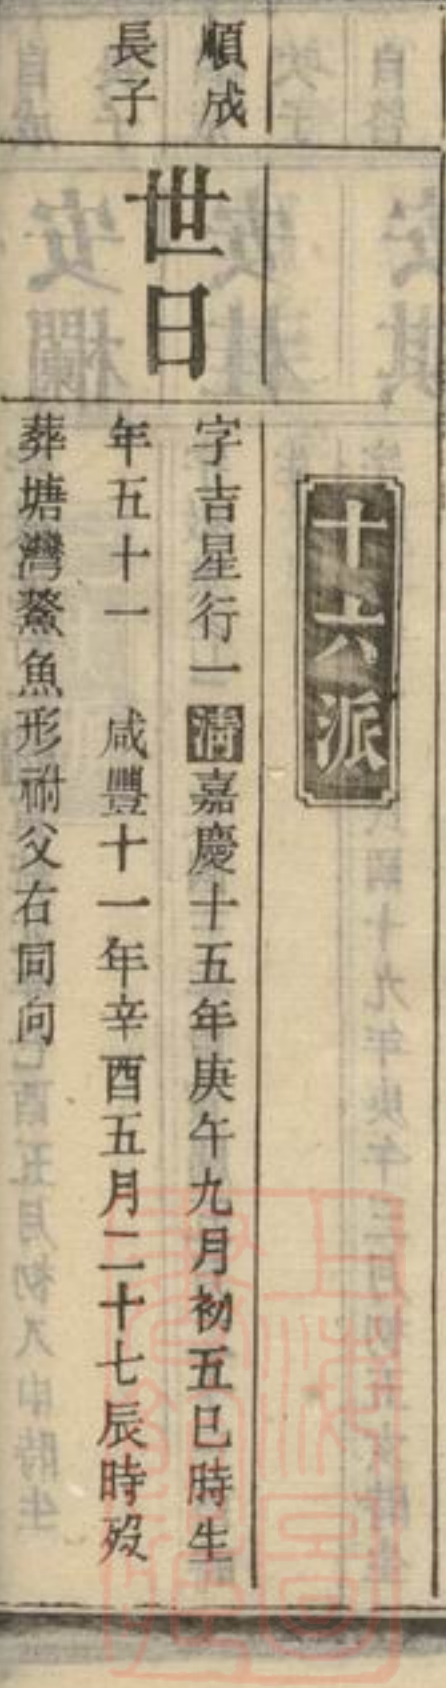 十六派
順成
長子
世日
字吉星行一清嘉慶十五年庚午九月初五巳時生
年五十一 咸豐十一年辛酉五月二十七辰時歿
葬塘灣鰲魚形祔父右同向